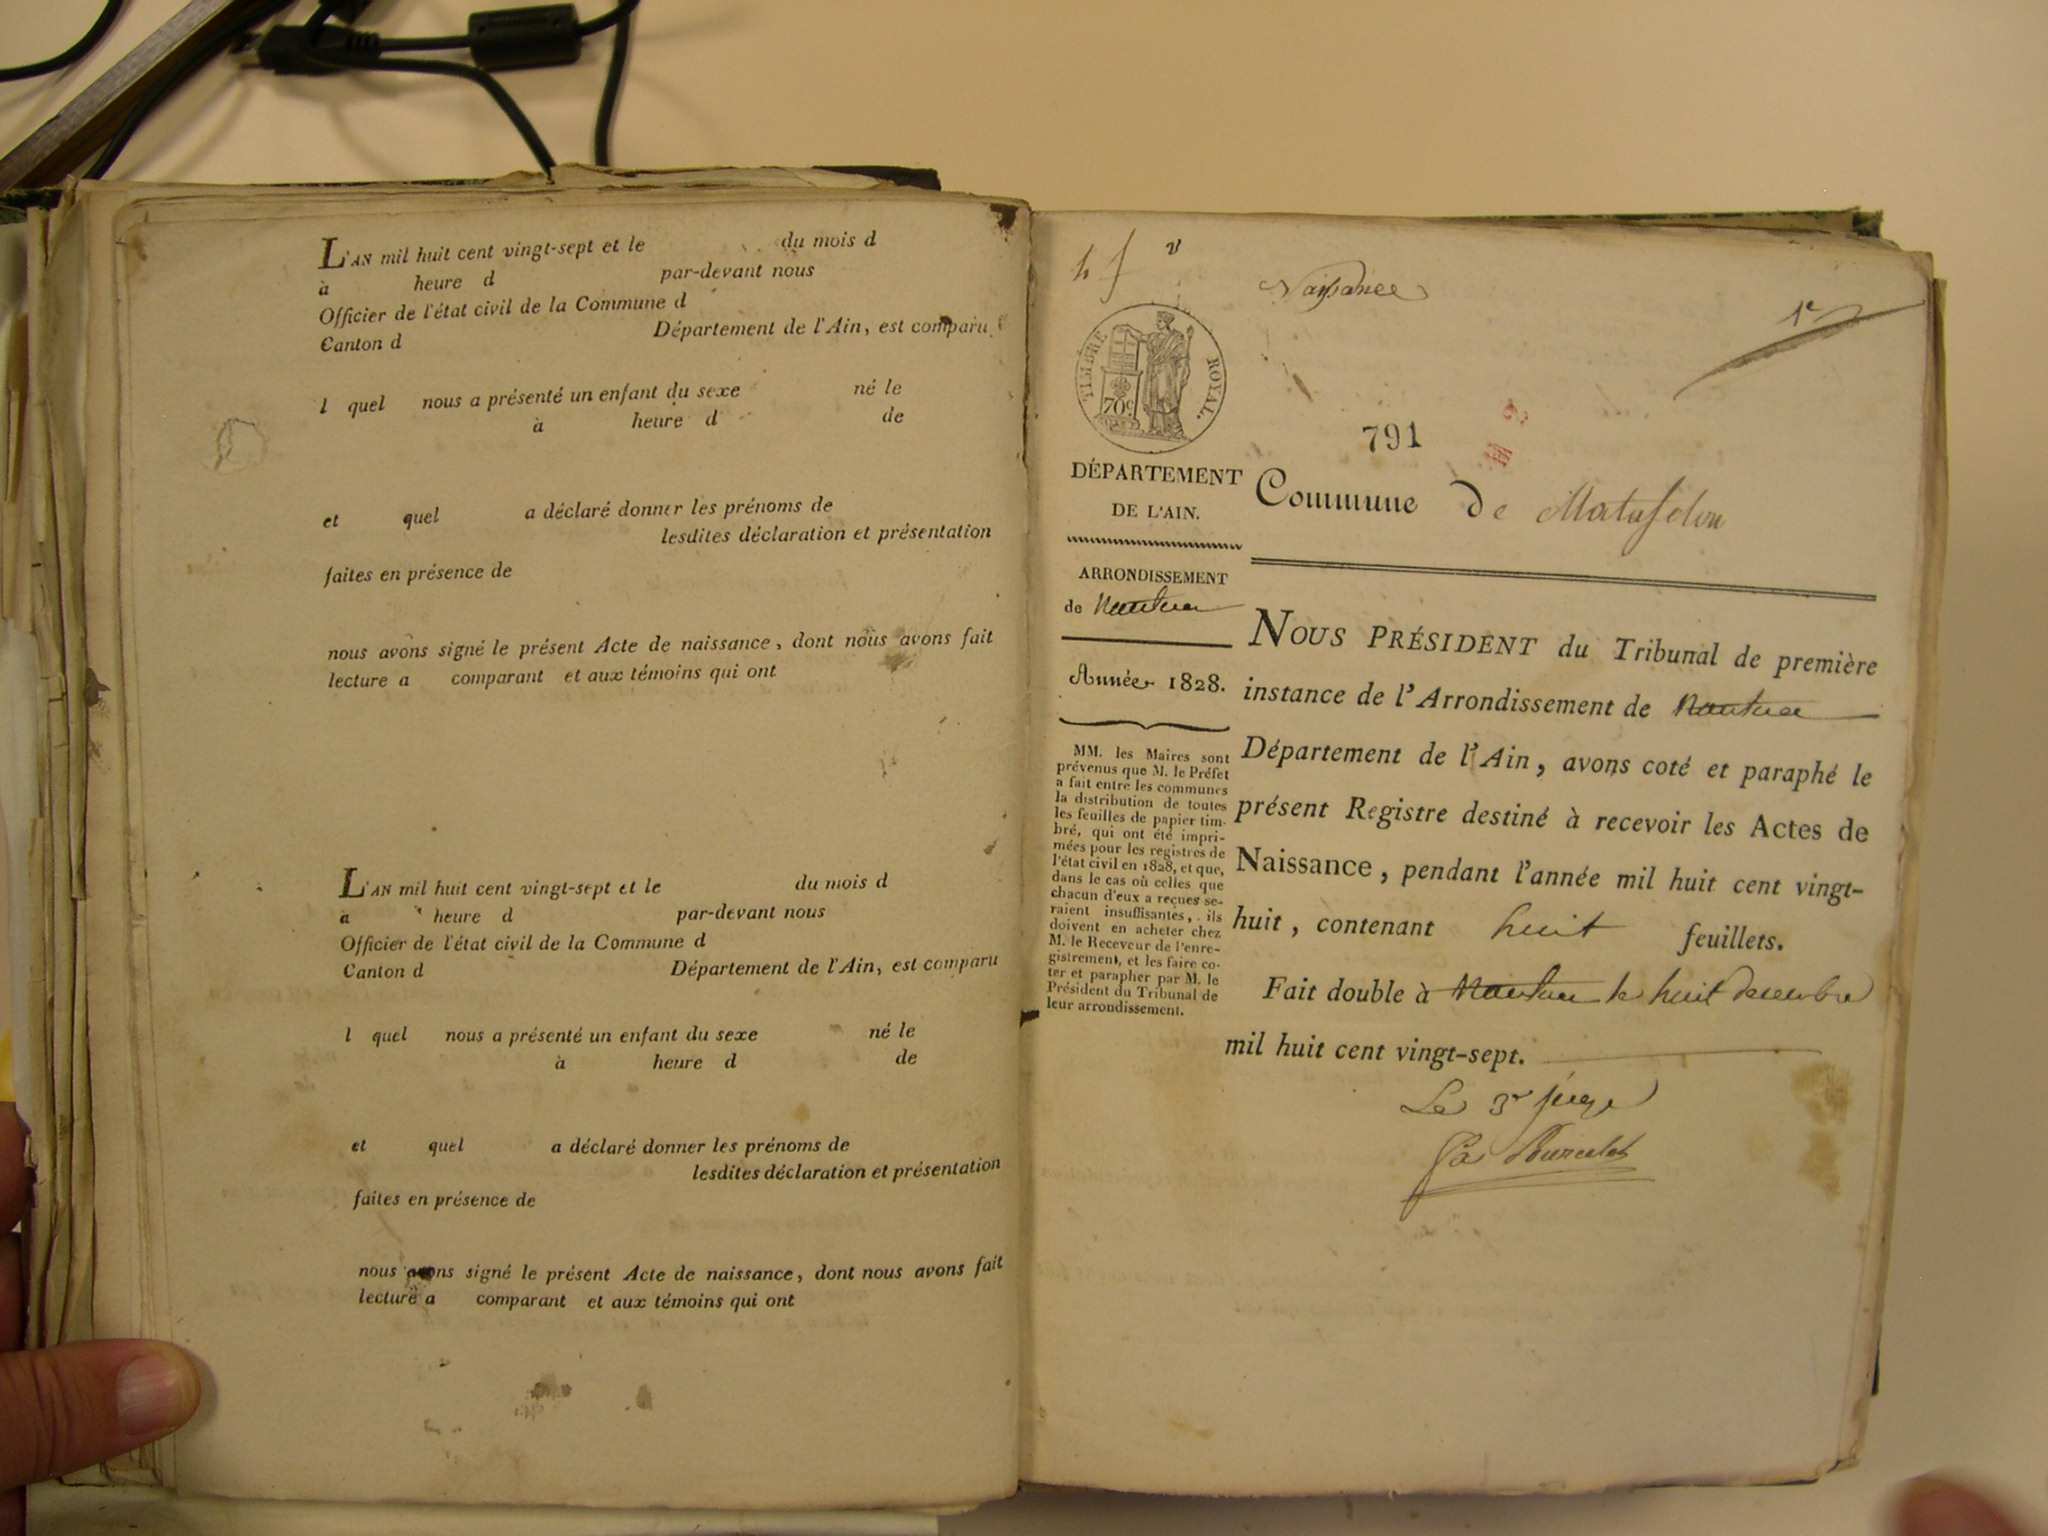 L'AN mil huit cent vingt-sept et le du mois d
à heure d par-devant nous
Officier de l'état civil de la Commune d
Canton d Département de l'Ain, est comparu
l quel nous a présenté un enfant du sexe né le
à heure d de
et quel a déclaré donner les prénoms de
lesdites déclaration et présentation
faites en présence de
nous avons signé le présent Acte de naissance, dont nous avons fait
lecture a comparant et aux témoins qui ont
L'AN mil huit cent vingt-sept et le du mois d
à heure d par-devant nous
Officier de l'état civil de la Commune d
Canton d Département de l'Ain, est comparu
l quel nous a présenté un enfant du sexe né le
à heure d de
et quel a déclaré donner les prénoms de
lesdites déclaration et présentation
faites en présence de
nous avons signé le présent Acte de naissance, dont nous avons fait
lecture a comparant et aux témoins qui ont
Naissance
1e
TIMBRE ROYAL.
70c
791
DÉPARTEMENT
DE L'AIN.
ARRONDISSEMENT
de Nantua
Année 1828.
MM. les Maires sont
prévenus que M. le Préfet
a fait entre les communes
la distribution de toutes
les feuilles de papier tim-
bré, qui ont été impri-
mées pour les registres de
l'état civil en 1828, et que,
dans le cas où celles que
chacun d'eux a reçues se-
raient insuffisantes, ils
doivent en acheter chez
M. le Receveur de l'enre-
gistrement, et les faire co-
ter et parapher par M. le
Président du Tribunal de
leur arrondissement.
Commune de Matafelon
NOUS PRÉSIDENT du Tribunal de première
instance de l'Arrondissement de Nantua
Département de l'Ain, avons coté et paraphé le
présent Registre destiné à recevoir les Actes de
Naissance, pendant l'année mil huit cent vingt-
huit, contenant huit feuillets.
Fait double à Nantua le huit decembre
mil huit cent vingt-sept.
Le 3r juge